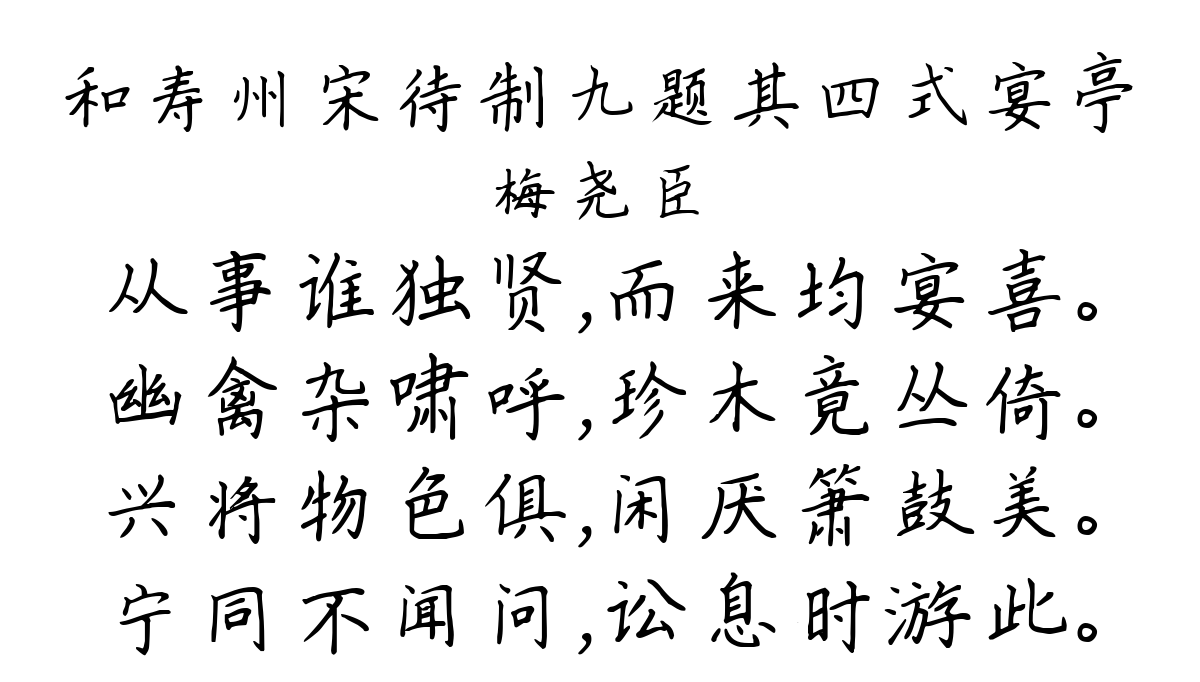 和寿州宋待制九题其四式宴亭
梅尧臣
从事谁独贤,而来均宴喜。
幽禽杂啸呼,珍木竟丛倚。
兴将物色俱,闲厌箫鼓美。
宁同不闻问,讼息时游此。